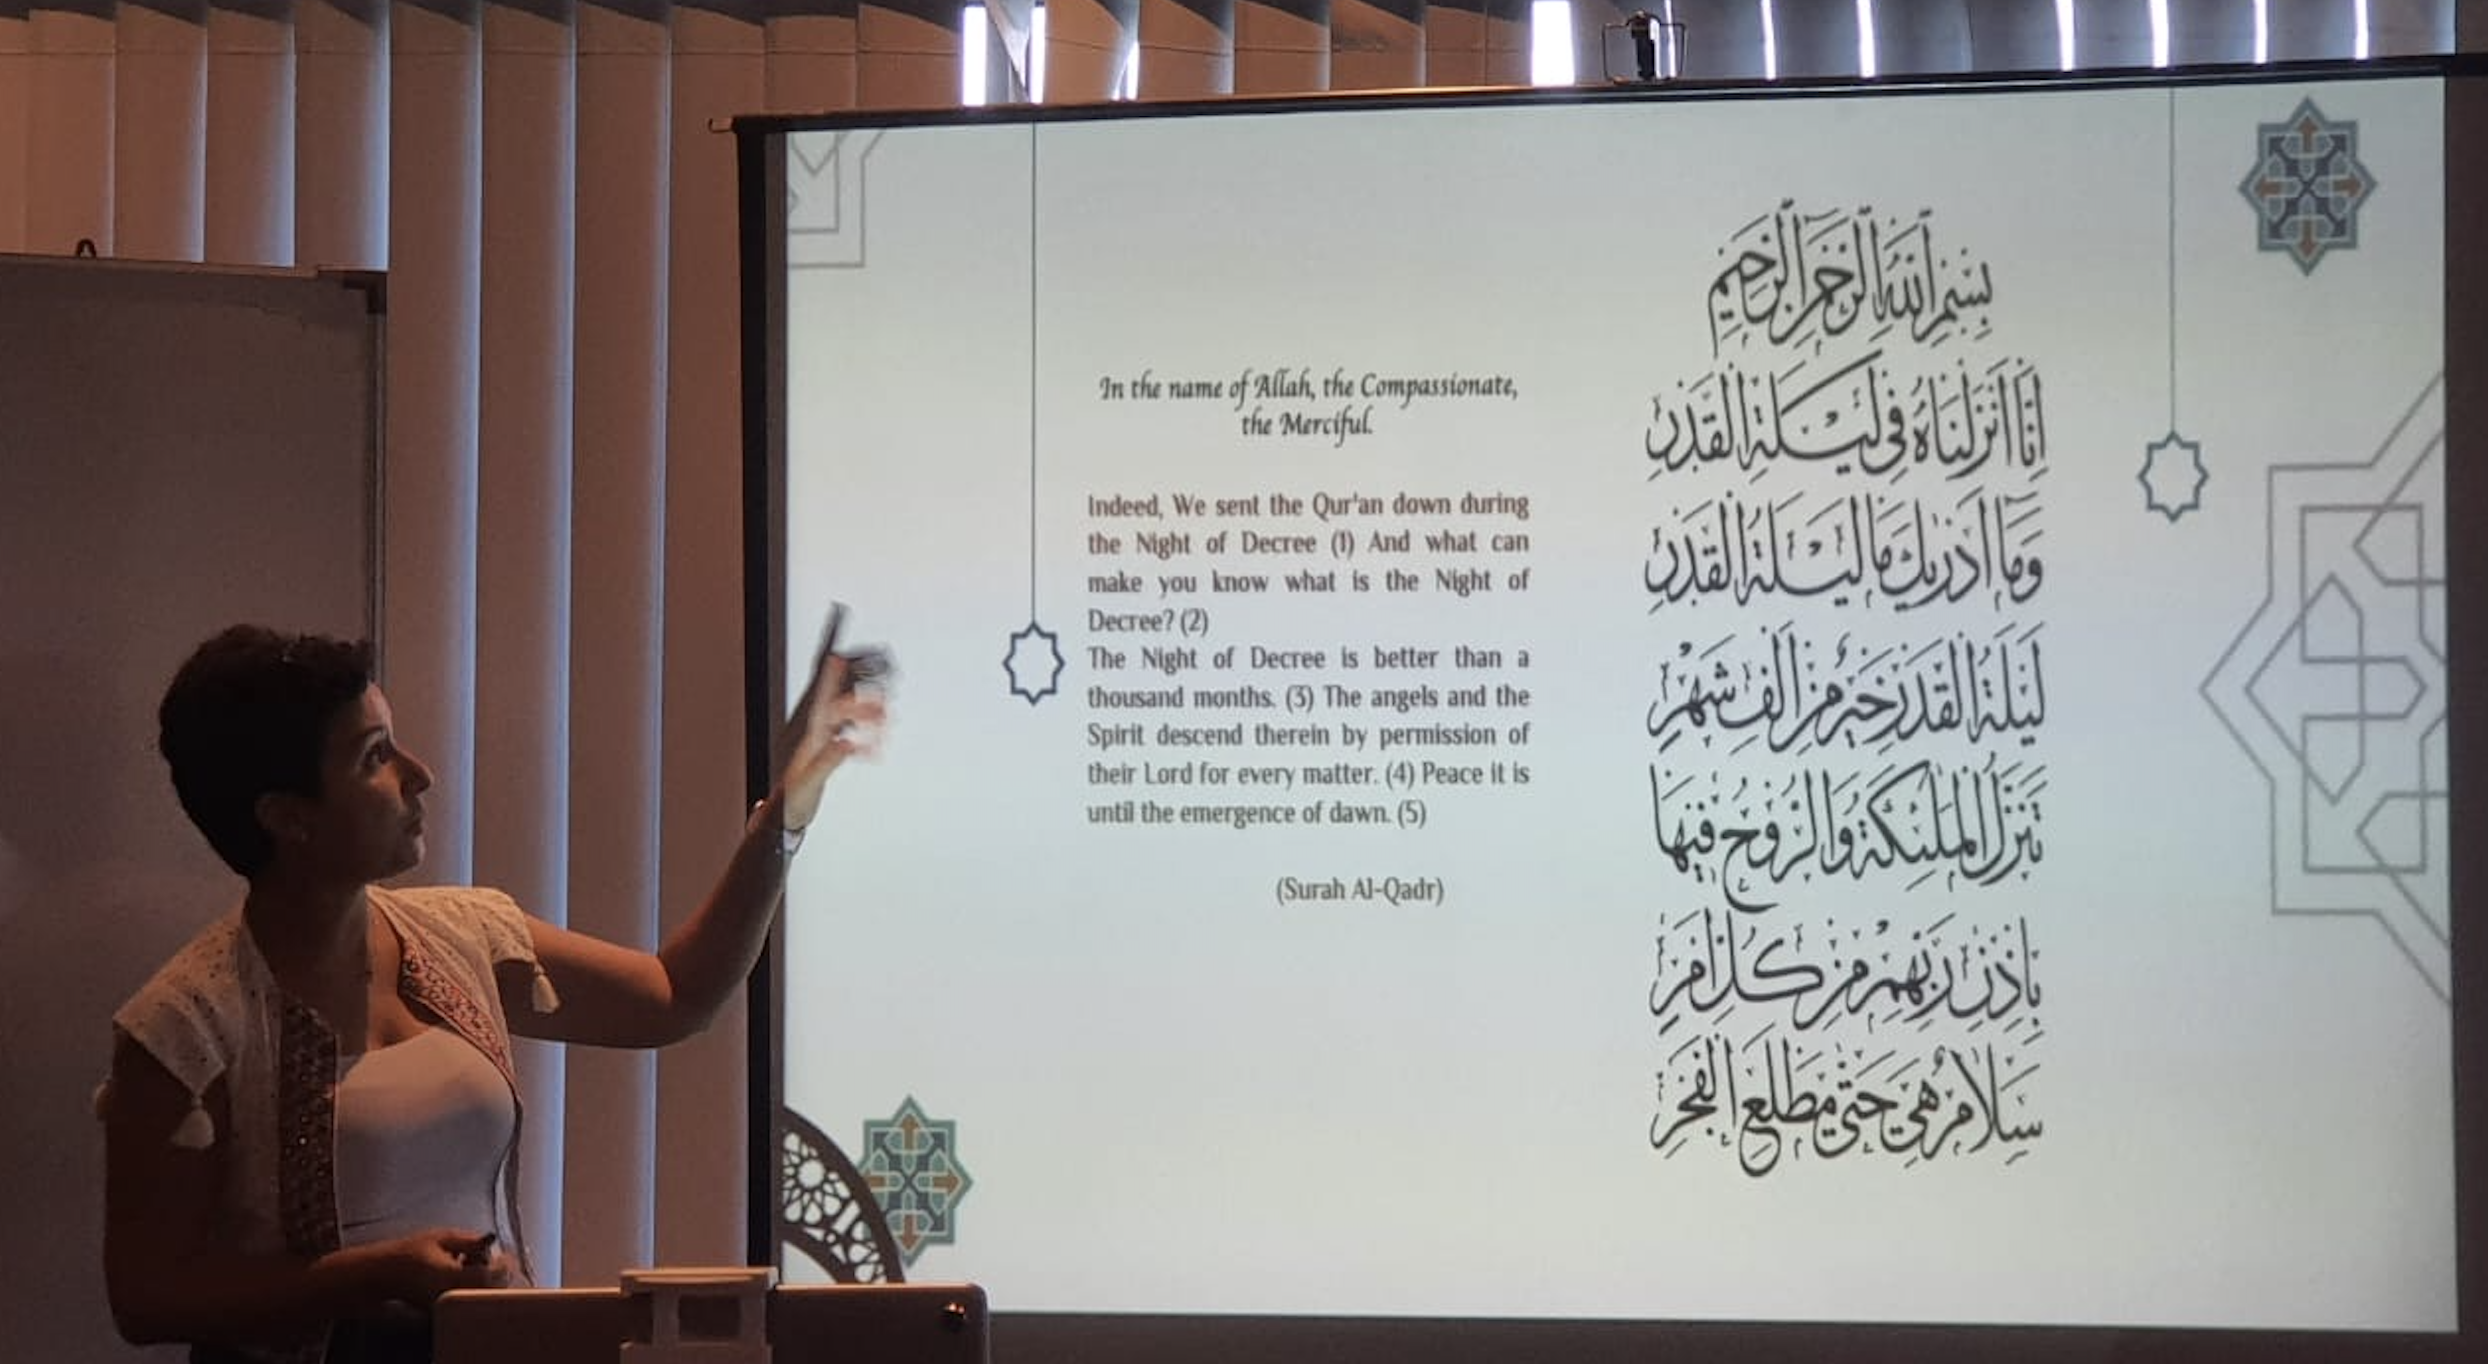 In the name of Allah, the Compassionate,
the Merciful.
Indeed, We sent the Qur'an down during
the Night of Decree (1) And what can
make you know what is the Night of
Decree? (2)
The Night of Decree is better than a
thousand months. (3) The angels and the
Spirit descend therein by permission of
their Lord for every matter. (4) Peace it is
until the emergence of dawn. (5)
(Surah Al-Qadr)
بِسْمِ اللَّهِ الرَّحْمَٰنِ الرَّحِيمِ
إِنَّا أَنْزَلْنَاهُ فِي لَيْلَةِ الْقَدْرِ
وَمَا أَدْرٰىكَ مَا لَيْلَةُ الْقَدْرِ
لَيْلَةُ الْقَدْرِ خَيْرٌ مِنْ أَلْفِ شَهْرٍ
تَنَزَّلُ الْمَلٰئِكَةُ وَالرُّوحُ فِيهَا
بِإِذْنِ رَبِّهِمْ مِنْ كُلِّ أَمْرٍ
سَلَامٌ هِيَ حَتَّى مَطْلَعِ الْفَجْرِ